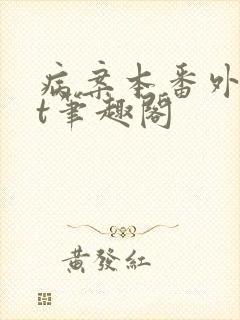 病案本番外
t笔趣阁
黃發紅